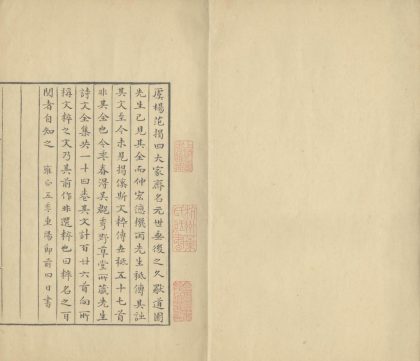 虞楊范揭四大家齊名元世垂後之久歐道園
先生已見其全而仲宏德機兩先生祗傳其詩
其文至今未見揭傒斯文粹傳世祗五十七首
非其全也今季春得吳觀季野草堂所藏先生
詩文全集共一十四卷其文計百廿六首向所
稱文粹之文乃其前作非選粹也因粹名之可
閱者自知之 雍正五季重陽節前四日書